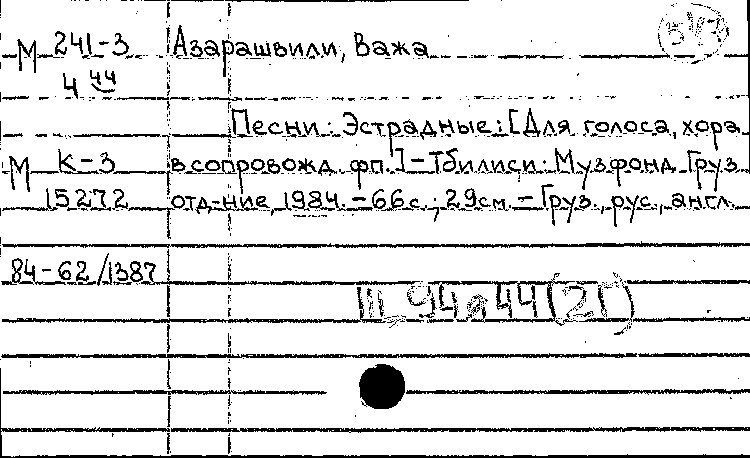 М 241-3 Азарашвили, Важа
4 44
Песни: Эстрадные: [Для голоса, хора
М К-3 в сопровожд. фп.] - Тбилиси: Музфонд. Груз.
15272 отд-ние, 1984. - 66 с.; 29см. - Груз., рус., англ.
84-62/1387
Щ 94я44(2Г)